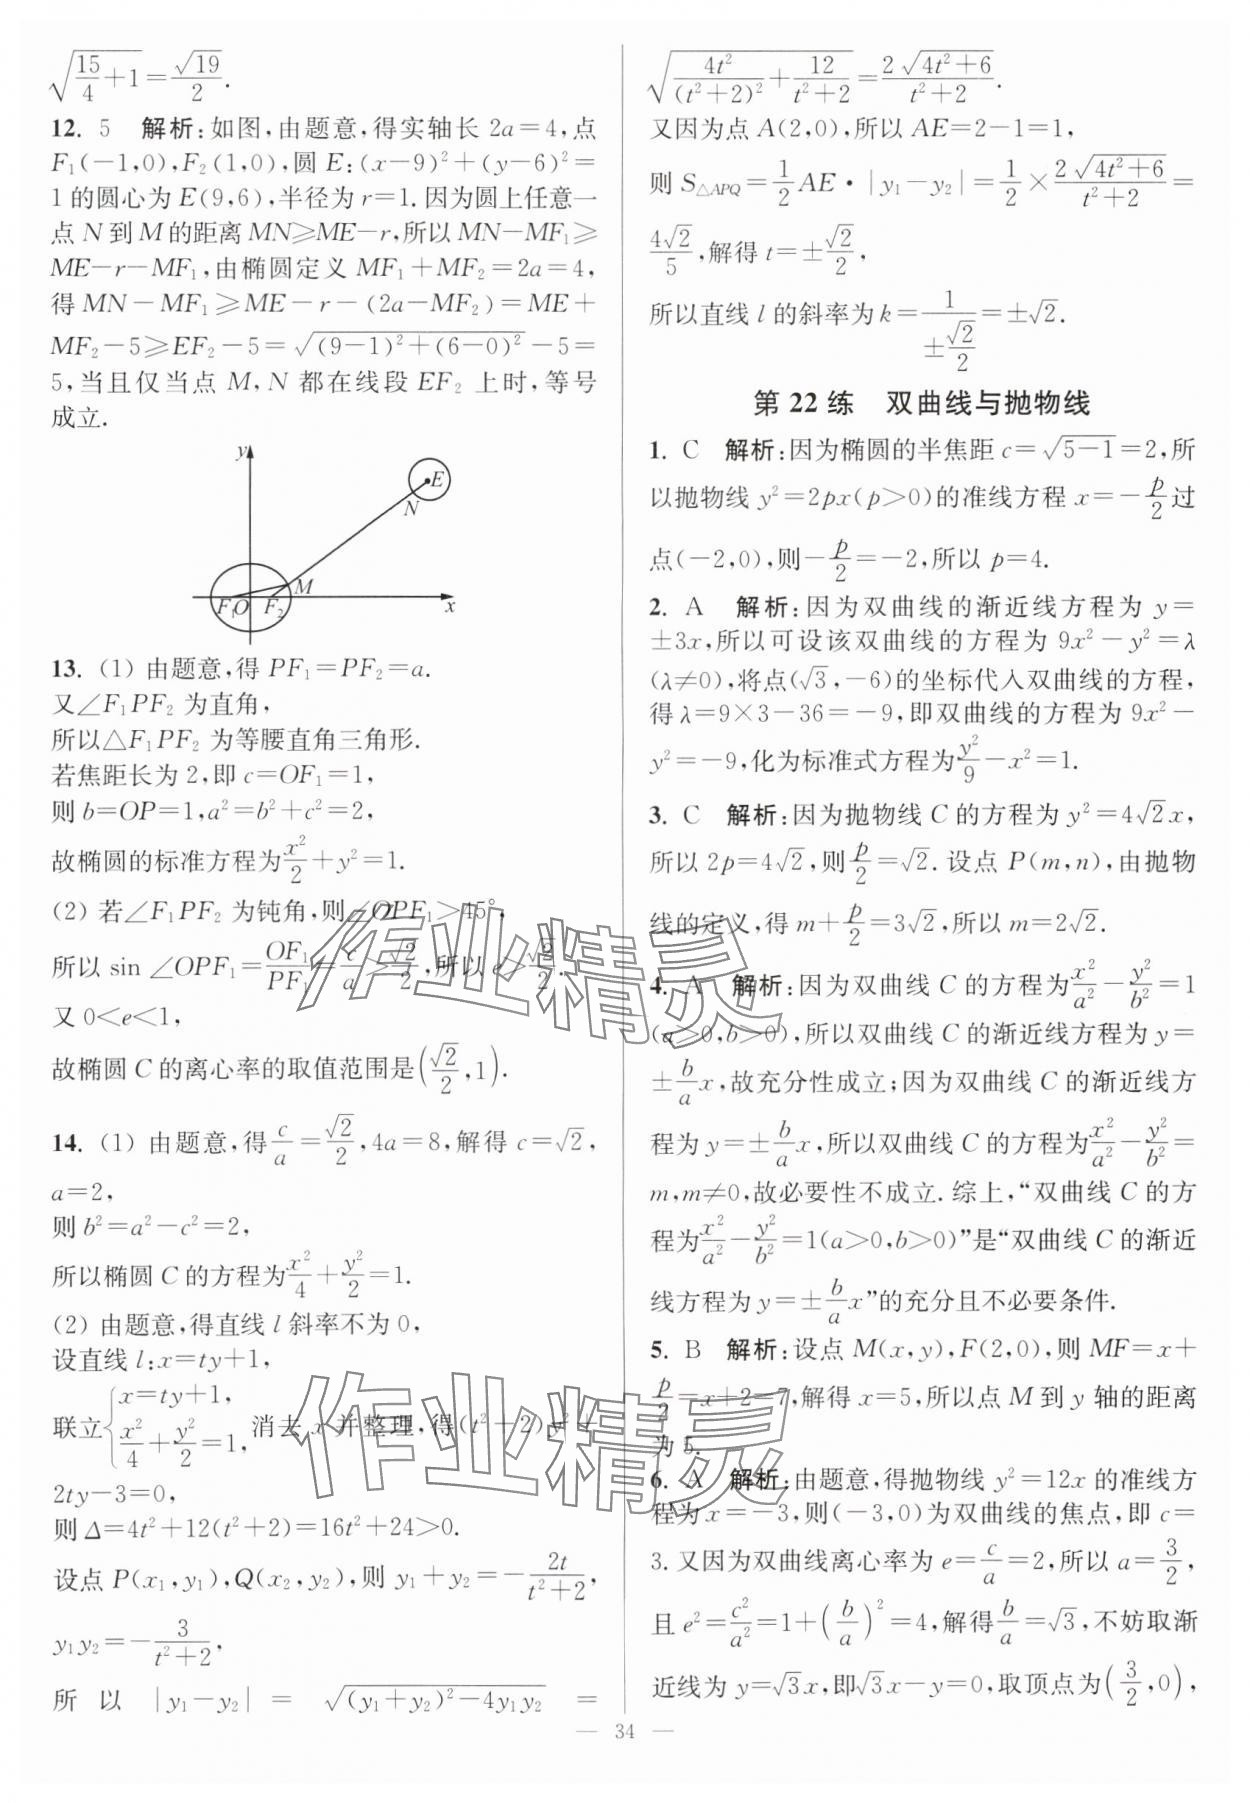 √(15/4+1)=√19/2.
12. 5 解析:如图,由题意,得实轴长 2a=4,点
F₁(-1,0),F₂(1,0),圆 E:(x-9)²+(y-6)²=
1 的圆心为 E(9,6),半径为 r=1. 因为圆上任意一
点 N 到 M 的距离 MN≥ME-r,所以 MN-MF₁≥
ME-r-MF₁,由椭圆定义 MF₁+MF₂=2a=4,
得 MN-MF₁≥ME-r-(2a-MF₂)=ME+
MF₂-5≥EF₂-5=√((9-1)²+(6-0)²)-5=
5,当且仅当点 M,N 都在线段 EF₂ 上时,等号
成立.
y
E
N
M
F₁ O F₂ x
13. (1) 由题意,得 PF₁=PF₂=a.
又∠F₁PF₂ 为直角,
所以△F₁PF₂ 为等腰直角三角形.
若焦距长为 2,即 c=OF₁=1,
则 b=OP=1,a²=b²+c²=2,
故椭圆的标准方程为x²/2+y²=1.
(2) 若∠F₁PF₂ 为钝角,则∠OPF₁>45°,
所以 sin ∠OPF₁=OF₁/PF₁=c/a>√2/2,所以 e>√2/2.
又 0<e<1,
故椭圆 C 的离心率的取值范围是(√2/2,1).
14. (1) 由题意,得c/a=√2/2,4a=8,解得 c=√2,
a=2,
则 b²=a²-c²=2,
所以椭圆 C 的方程为x²/4+y²/2=1.
(2) 由题意,得直线 l 斜率不为 0,
设直线 l:x=ty+1,
联立{x=ty+1, x²/4+y²/2=1, 消去 x 并整理,得(t²+2)y²+
2ty-3=0,
则 Δ=4t²+12(t²+2)=16t²+24>0.
设点 P(x₁,y₁),Q(x₂,y₂),则 y₁+y₂=-2t/(t²+2),
y₁y₂=-3/(t²+2),
所以 |y₁-y₂| = √((y₁+y₂)²-4y₁y₂) =
√(4t²/(t²+2)²+12/(t²+2))=2√(4t²+6)/(t²+2).
又因为点 A(2,0),所以 AE=2-1=1,
则 S△APQ=1/2 AE·|y₁-y₂|=1/2×2√(4t²+6)/(t²+2)=
4√2/5,解得 t=±√2/2,
所以直线 l 的斜率为 k=1/(±√2/2)=±√2.
第 22 练 双曲线与抛物线
1. C 解析:因为椭圆的半焦距 c=√(5-1)=2,所
以抛物线 y²=2px(p>0)的准线方程 x=-p/2过
点(-2,0),则-p/2=-2,所以 p=4.
2. A 解析:因为双曲线的渐近线方程为 y=
±3x,所以可设该双曲线的方程为 9x²-y²=λ
(λ≠0),将点(√3,-6)的坐标代入双曲线的方程,
得 λ=9×3-36=-9,即双曲线的方程为 9x²-
y²=-9,化为标准式方程为y²/9-x²=1.
3. C 解析:因为抛物线 C 的方程为 y²=4√2x,
所以 2p=4√2,则p/2=√2. 设点 P(m,n),由抛物
线的定义,得 m+p/2=3√2,所以 m=2√2.
4. A 解析:因为双曲线 C 的方程为x²/a²-y²/b²=1
(a>0,b>0),所以双曲线 C 的渐近线方程为 y=
±b/a x,故充分性成立;因为双曲线 C 的渐近线方
程为 y=±b/a x,所以双曲线 C 的方程为x²/a²-y²/b²=
m,m≠0,故必要性不成立. 综上,“双曲线 C 的方
程为x²/a²-y²/b²=1(a>0,b>0)”是“双曲线 C 的渐近
线方程为 y=±b/a x”的充分且不必要条件.
5. B 解析:设点 M(x,y),F(2,0),则 MF=x+
p/2=x+2=7,解得 x=5,所以点 M 到 y 轴的距离
为 5.
6. A 解析:由题意,得抛物线 y²=12x 的准线方
程为 x=-3,则(-3,0)为双曲线的焦点,即 c=
3. 又因为双曲线离心率为 e=c/a=2,所以 a=3/2,
且 e²=c²/a²=1+(b/a)²=4,解得b/a=√3,不妨取渐
近线为 y=√3x,即√3x-y=0,取顶点为(3/2,0),
— 34 —
作业精灵
作业精灵